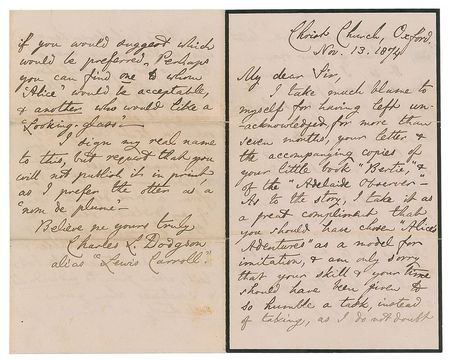 Christ Church, Oxford.
Nov. 13. 1874
My dear Sir,
I take much blame to
myself for having left un-
acknowledged, for more than
seven months, your letter &
the accompanying copies of
your little book "Bertie," &
of the "Adelaide Observer" —
As to the story, I take it as
a great compliment that
you should have chosen "Alice's
Adventures" as a model for
imitation, & am only sorry
that your skill & your time
should have been given to
so humble a task, instead
of taking, as I do not doubt
if you would suggest which
would be preferred. Perhaps
you can find one to whom
"Alice" would be acceptable,
& another who would like a
"Looking-glass" —
I sign my real name
to this, but request that you
will not publish it in print
as I prefer the other as a
"nom de plume" —
Believe me yours truly
Charles L. Dodgson
alias "Lewis Carroll."